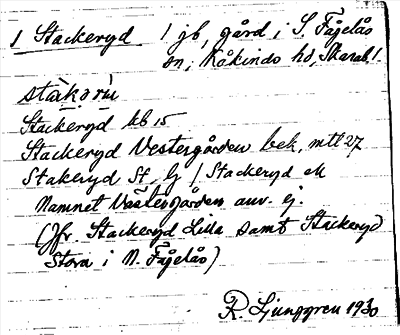 1 Stackeryd 1 jb, gård i S. Fågelås
sn, Kåkinds hd, Skarab. l.
Stackeryd kb 15
Stackeryd Vestergården bek, mtl 27
Stakeryd St, Lj / Stackeryd ek
Namnet Västergården anv. ej.
(Jfr. Stackeryd Lilla samt Stackeryd
Stora i N. Fågelås)
R Ljunggren 1930